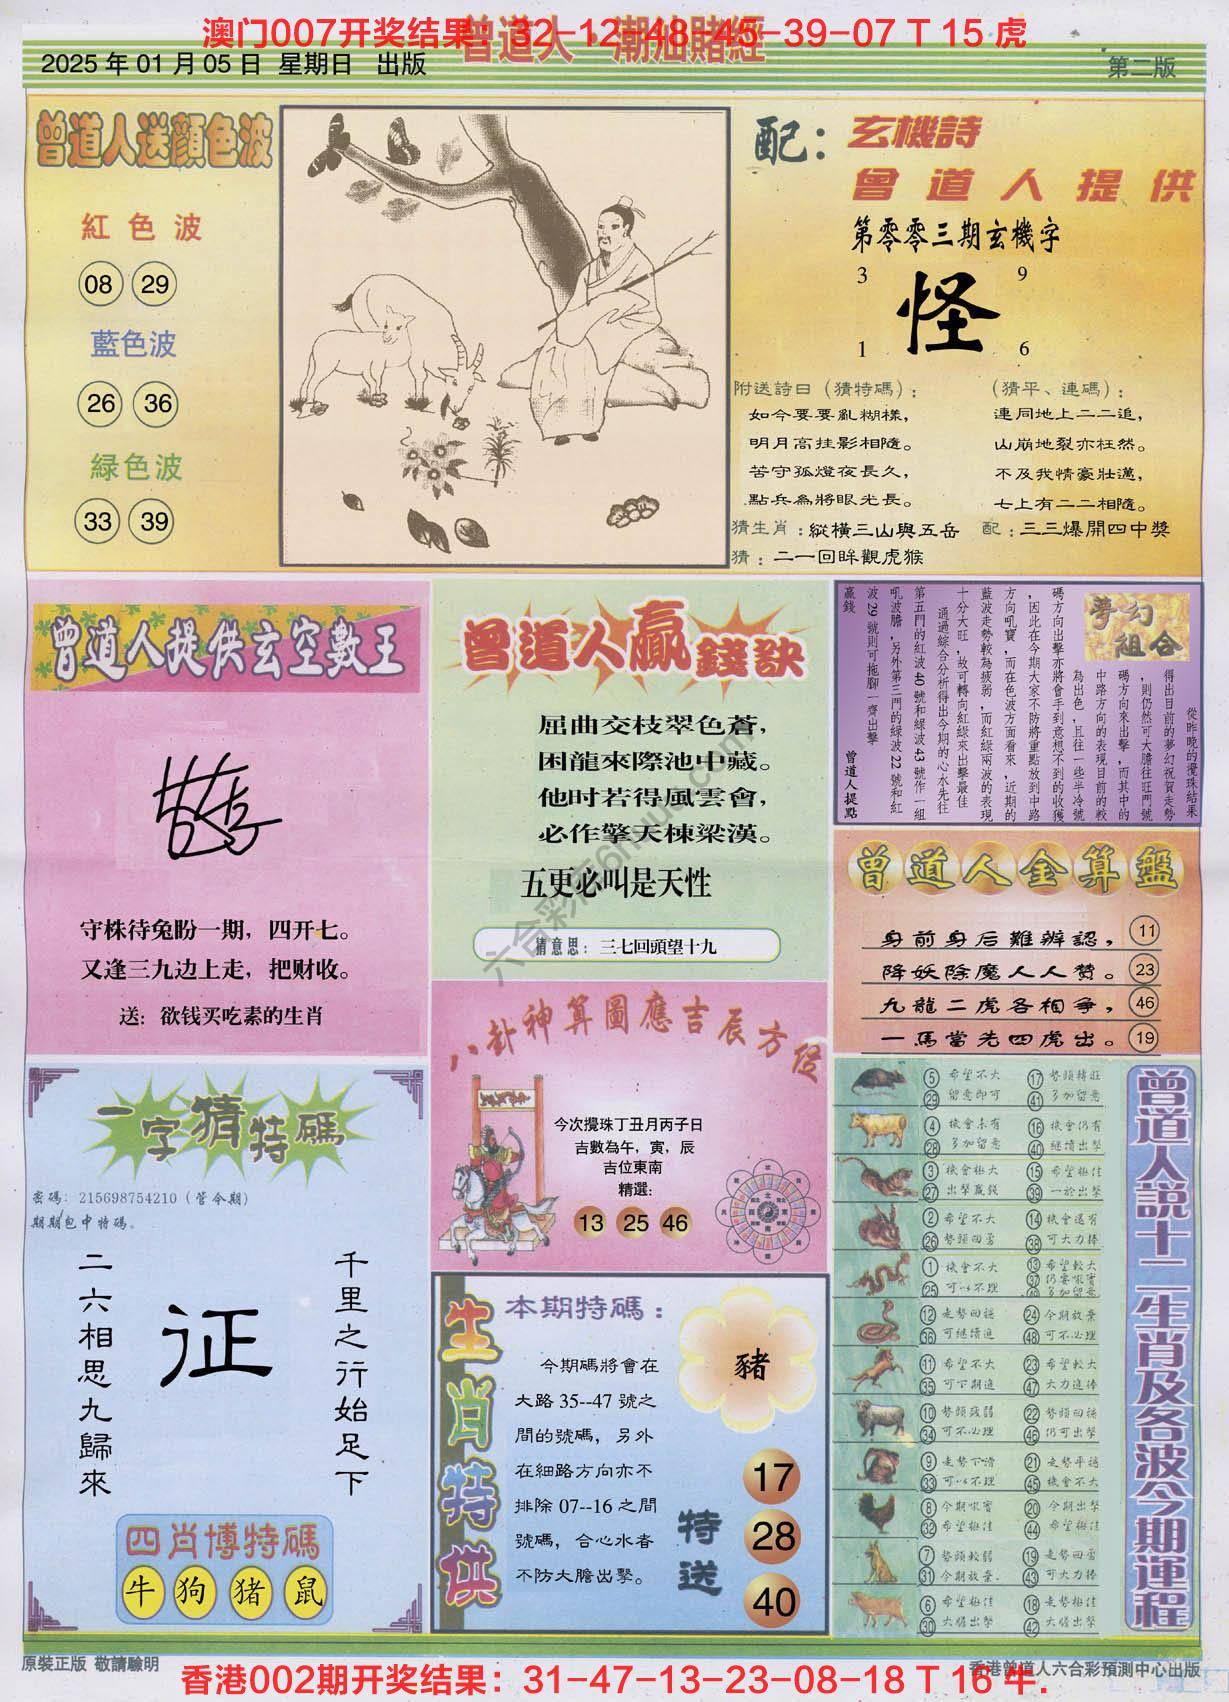 澳门007开奖结果：32-12-48-45-39-07 T 15 虎
曾道人·潮汕賭經
2025 年 01 月 05 日 星期日 出版
第二版
曾道人送顏色波
紅色波
08 29
藍色波
26 36
綠色波
33 39
配：玄機詩
曾道人提供
第零零三期玄機字
3 9
怪
1 6
附送詩日（猜特碼）：
如今要要亂糊樣，
明月高挂影相隨。
苦守孤燈夜長久，
點兵為將眼光長。
（猜平、連碼）：
連同地上二二追，
山崩地裂亦枉然。
不及我情豪壯邁，
七上有二二相隨。
猜生肖：縱橫三山與五岳
配：三三爆開四中獎
猜：二一回眸觀虎猴
曾道人提供玄空數王
守株待兔盼一期，四开七。
又逢三九边上走，把财收。
送：欲钱买吃素的生肖
曾道人贏錢訣
屈曲交枝翠色蒼，
困龍來際池中藏。
他时若得風雲會，
必作擎天棟梁漢。
五更必叫是天性
猜意思：三七回頭望十九
夢幻組合
從昨晚的攪珠結果
得出目前的夢幻祝賀走勢
，則仍然可大膽往旺門號
碼方向來出擊，而其中的
中路方向的表現目前的較
為出色，且往一些半冷號
碼方向出擊亦將會手到意想不到的收獲
，因此在今期大家不防將重點放到中路
方向吼寶，而在色波方面看來，近期的
藍波走勢較為疲弱，而紅綠兩波的表現
十分大旺，故可轉向紅綠來出擊最佳
通過綜合分析得出今期的心水先往
第五門的紅波 40 號和綠波 43 號作一組
吼波膽，另外第三門的綠波 22 號和紅
波 29 號則可拖腳一齊出擊
贏錢
曾道人提點
曾道人金算盤
身前身后難辨認， 11
降妖除魔人人贊。 23
九龍二虎各相爭， 46
一馬當先四虎出。 19
八卦神算圖應吉辰方位
今次攪珠丁丑月丙子日
吉數為午，寅，辰
吉位東南
精選：
13 25 46
一字猜特碼
密碼：215698754210（管令期）
期期包中特碼。
千里之行始足下
征
二六相思九歸來
四肖博特碼
牛 狗 猪 鼠
生肖特供
本期特碼：
豬
今期碼將會在
大路 35--47 號之
間的號碼，另外
在細路方向亦不
排除 07--16 之間
號碼，合心水者
不防大膽出擊。
特送
17
28
40
曾道人說十二生肖及各波今期運程
5 希望不大 17 勢頭轉旺
29 留意即可 41 多加留意
4 機會未有 16 機會仍有
28 多加留意 40 繼續出擊
3 機會極大 15 希望極佳
27 出擊贏錢 39 一於出擊
2 希望不大 14 機會還有
26 勢頭回勇 38 可大力捧
1 機會不大 13 希望較大
25 可以不理 37
多加留意
12 走勢回穩 24 今期放棄
36 可繼續追 48 可不必理
11 希望不大 23 希望較大
35 可下期追 47 大力追捧
10 勢頭疲弱 22 勢頭回穩
34 可不必理 46 仍可出擊
9 走勢下滑 21 走勢平穩
33 可以不理 45 機會不大
8 今期吼實 20 今期出擊
32 希望極佳 44 希望極佳
7 勢頭較弱 19 走勢回勇
31 今期放棄. 43 可大力捧
6 希望極佳 18 走勢極佳
30 大膽出擊 42 大膽出擊
六合彩库6hhuu.com
原裝正版 敬請驗明
香港曾道人六合彩預測中心出版
香港002期开奖结果：31-47-13-23-08-18 T 16 牛.